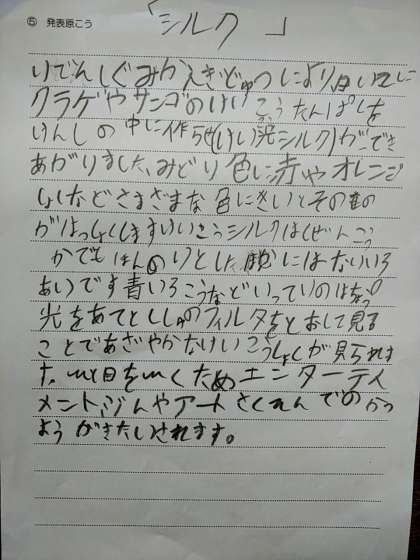 ⑤ 発表原こう
「シルク」
いでんしぐみかえぎじゅつにより白いマユに
クラゲやサンゴのけいこうたんぱくを
けんしの中に作らせ(けい光シルク)ができ
あがりました、みどり色に赤やオレンジ
などさまざまな色にきいとそのもの
がはっしょくしますけいこうシルクはしぜんこう
かでもほんのりとした
あいです青いろこうなどいっていのはちょう
光をあてとくしゅのフィルタをとおして見る
ことであざやかなけいこうしょくが見られま
た、人目をひくためエンターテイ
メント、やアートさくひんでのかつ
ようがきたいされます。